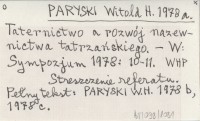 PARYSKI Witold H. 1978a.
Taternictwo a rozwój nazew-
nictwa tatrzańskiego. - W:
Sympozjum 1978: 10-11. WHP
Streszczenie referatu.
Pełny tekst: PARYSKI W.H. 1978b,
1978c.